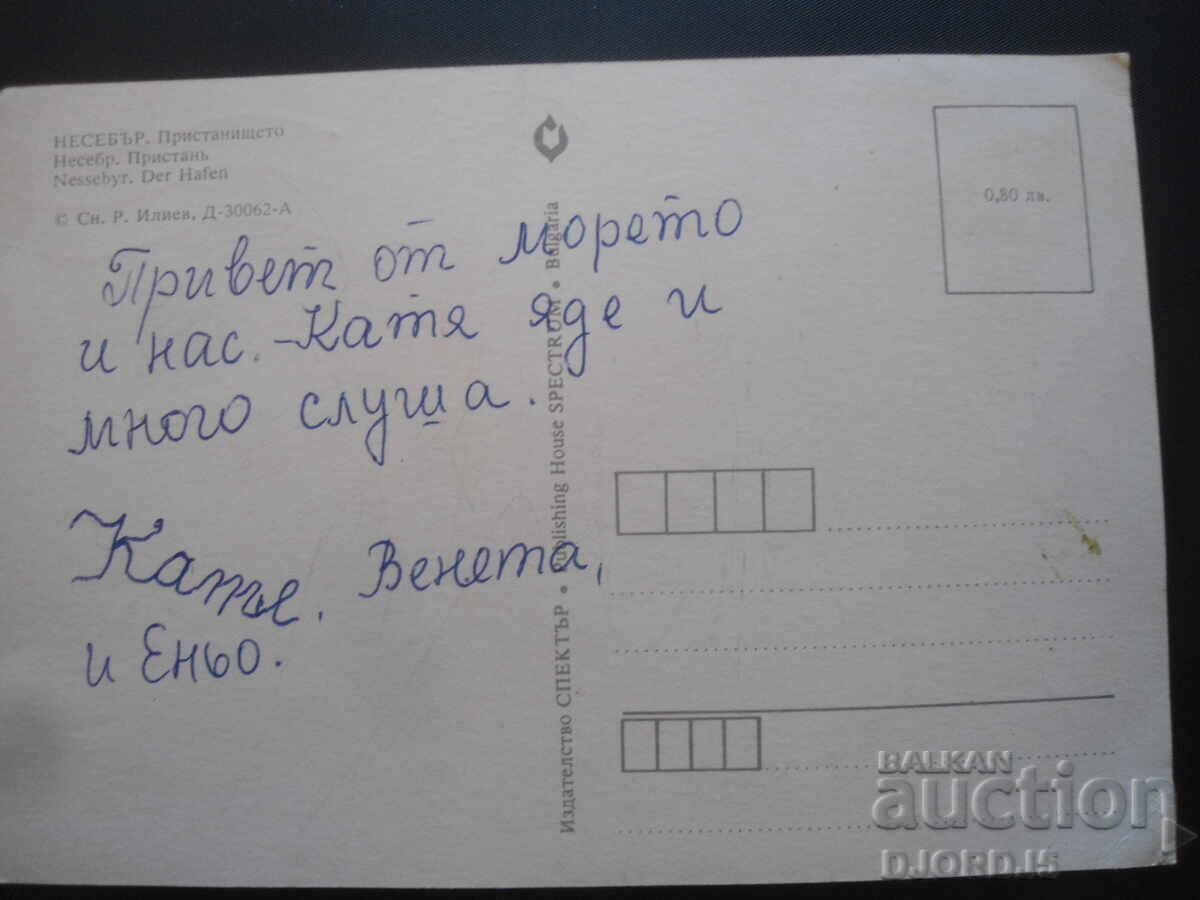 НЕСЕБЪР. Пристанището
Несебр. Пристань
Nessebyr. Der Hafen
© Сн. Р. Илиев, Д-30062-А
0,80 лв.
Привет от морето
и нас. Катя яде и
много слуша.
Катя, Венета,
и Еньо.
Издателство СПЕКТЪР • Publishing House SPECTRUM • Bulgaria
BALKAN
auction
DJORD.15